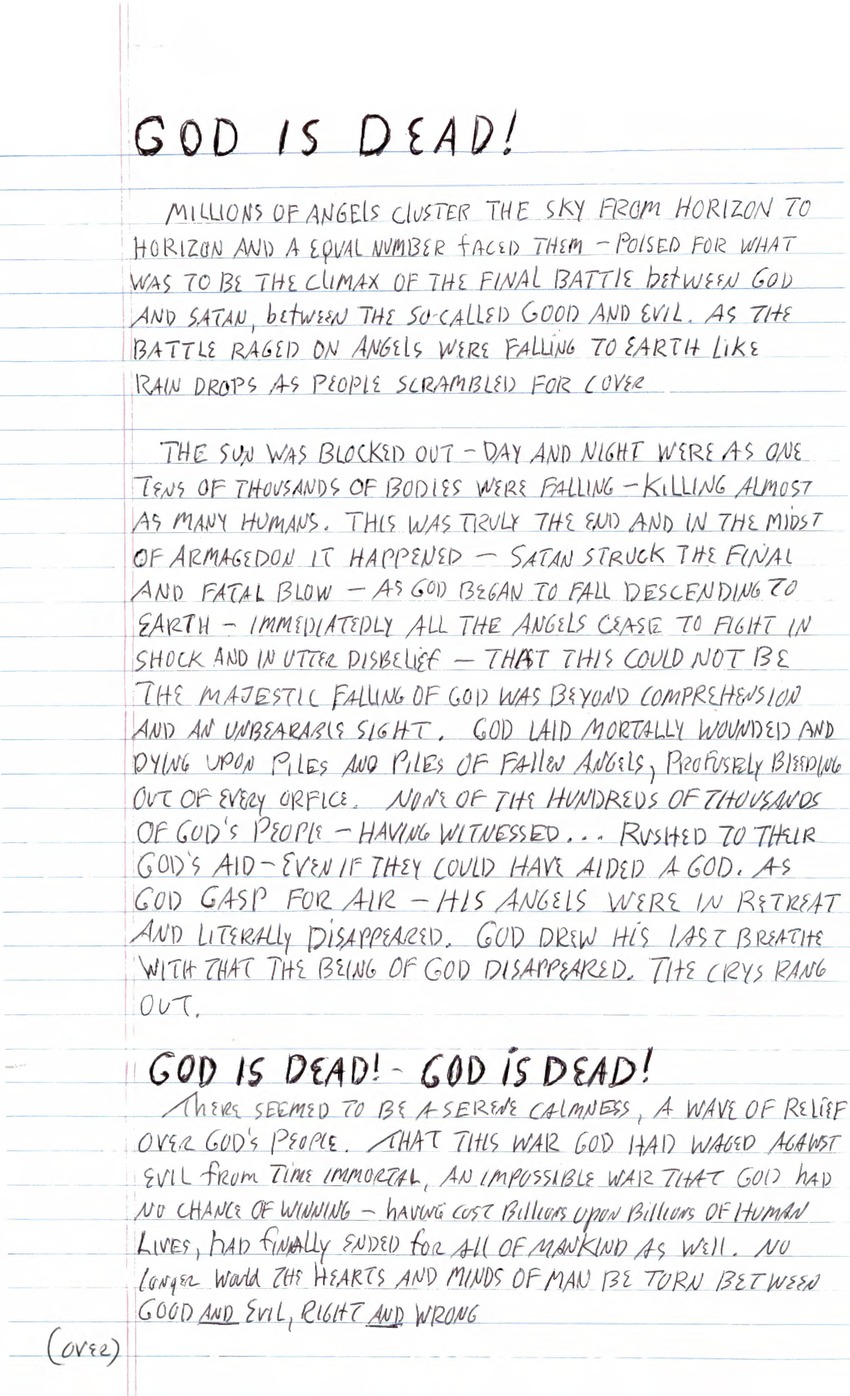 GOD IS DEAD!
MILLIONS OF ANGELS CLUSTER THE SKY FROM HORIZON TO
HORIZON AND A EQUAL NUMBER FACED THEM – POISED FOR WHAT
WAS TO BE THE CLIMAX OF THE FINAL BATTLE between GOD
AND SATAN, between THE SO-CALLED GOOD AND EVIL. AS THE
BATTLE RAGED ON ANGELS WERE FALLING TO EARTH LIKE
RAIN DROPS AS PEOPLE SCRAMBLED FOR COVER
THE SUN WAS BLOCKED OUT – DAY AND NIGHT WERE AS ONE
TENS OF THOUSANDS OF BODIES WERE FALLING – KILLING ALMOST
AS MANY HUMANS. THIS WAS TRULY THE END AND IN THE MIDST
OF ARMAGEDON IT HAPPENED – SATAN STRUCK THE FINAL
AND FATAL BLOW – AS GOD BEGAN TO FALL DESCENDING TO
EARTH – IMMEDIATEDLY ALL THE ANGELS CEASE TO FIGHT IN
SHOCK AND IN UTTER DISBELIEF – THAT THIS COULD NOT BE
THE MAJESTIC FALLING OF GOD WAS BEYOND COMPREHENSION
AND AN UNBEARABLE SIGHT. GOD LAID MORTALLY WOUNDED AND
DYING UPON PILES AND PILES OF FALLEN ANGELS, PROFUSELY BLEEDING
OUT OF EVERY ORFICE. NONE OF THE HUNDREDS OF THOUSANDS
OF GOD'S PEOPLE – HAVING WITNESSED... RUSHED TO THEIR
GOD'S AID – EVEN IF THEY COULD HAVE AIDED A GOD. AS
GOD GASP FOR AIR – HIS ANGELS WERE IN RETREAT
AND LITERALLY DISAPPEARED. GOD DREW HIS LAST BREATHE
WITH THAT THE BEING OF GOD DISAPPEARED. THE CRYS RANG
OUT.
GOD IS DEAD! - GOD IS DEAD!
THERE SEEMED TO BE A SERENE CALMNESS, A WAVE OF RELIEF
OVER GOD'S PEOPLE. THAT THIS WAR GOD HAD WAGED AGAINST
EVIL from TIME IMMORTAL, AN IMPOSSIBLE WAR THAT GOD HAD
NO CHANCE OF WINNING – HAVING COST Billions upon Billions OF HUMAN
LIVES, HAD FINALLY ENDED for ALL OF MANKIND AS WELL. NO
longer would THE HEARTS AND MINDS OF MAN BE TORN BETWEEN
GOOD AND EVIL, RIGHT AND WRONG
(OVER)